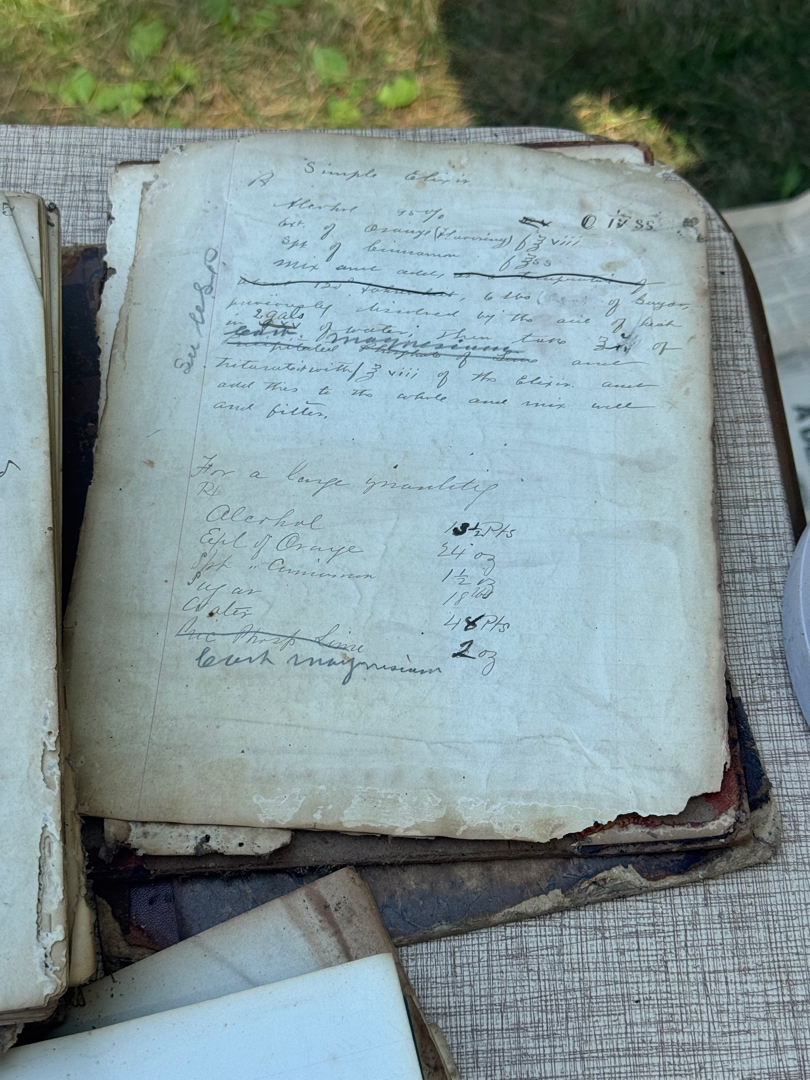 Simple Elixir
℞
Alcohol 95% O iv ss
Ext. of Orange (flavoring) f℥ viii
Spt of Cinnamon f℥ss
Mix and add,
6 lbs of Sugar,
previously dissolved by the aid of heat
in 2 gals of water, then take of
Carb magnesium and
triturate with f℥ viii of the Elixir and
add this to the whole and mix well
and filter.
For a large quantity
Rx
Alcohol 13½ Pts
Expl of Orange 24 oz
Spt " Cinnamon 1½ oz
Sugar 18 lbs
Water 48 Pts
Prec Phosp Lime
Carb magnesium 2 oz